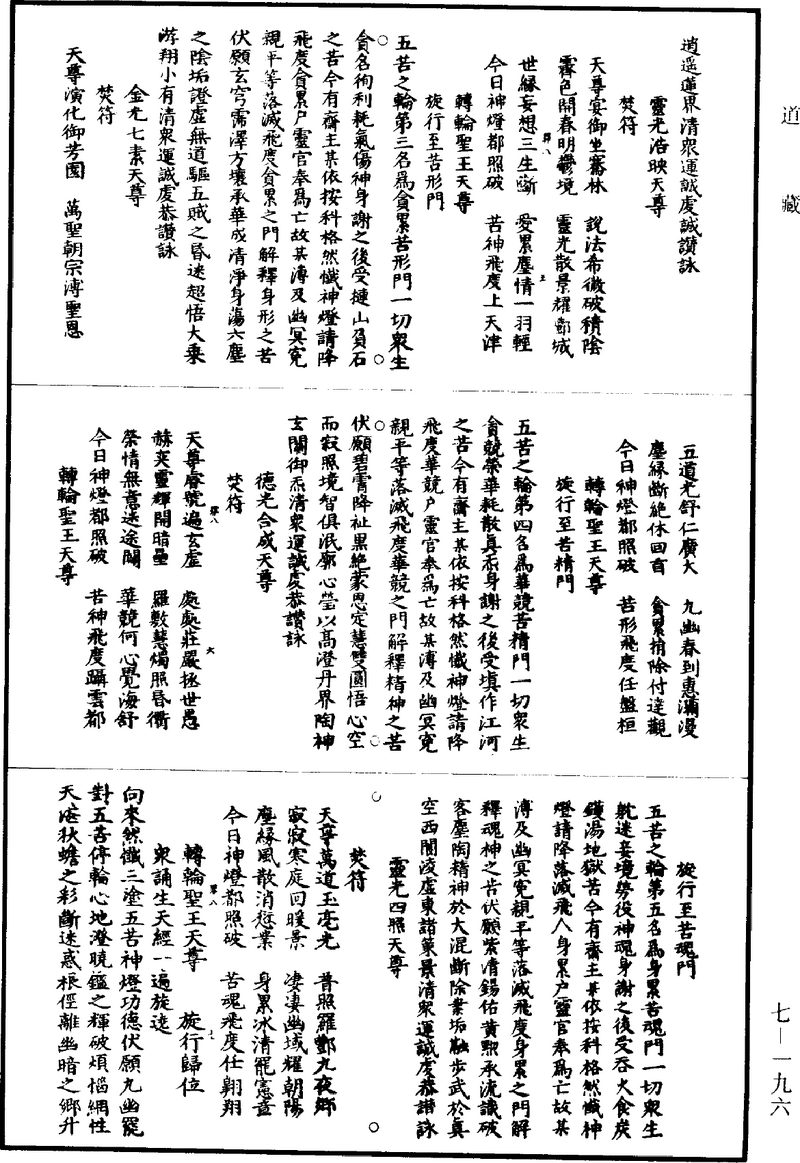 道藏
逍遥蓮界清衆運誠虔誠讚詠
靈光浩映天尊
焚符
天尊宴御坐騫林　說法希微破積陰
霽色開春明鬱境　靈光散景耀酆城
世緣妄想三生斷　愛累塵情一羽輕
今日神燈都照破　苦神飛度上天津
轉輪聖王天尊
旋行至苦形門
五苦之輪第三名爲貪累苦形門一切衆生
貪名徇利耗氣傷神身謝之後受摙山負石
之苦今有齋主某依按科格然懺神燈請降
飛度貪累户靈官奉爲亡故某溥及幽冥寃
親平等落滅飛度貪累之門解釋身形之苦
伏願玄穹霈澤方壤承華成清淨身蕩六塵
之陰垢證虛無道驅五賊之昏迷超悟大乗
游翔小有清衆運誠虔恭讚詠
金光七素天尊
焚符
天尊演化御芳園　萬聖朝宗溥聖恩
五道光舒仁廣大　九幽春到惠瀰漫
塵緣斷絶休回首　貪累捐除付達觀
今日神燈都照破　苦形飛度任盤桓
轉輪聖王天尊
旋行至苦精門
五苦之輪第四名爲華競苦精門一切衆生
貪競榮華耗散真炁身謝之後受填作江河
之苦今有齋主某依按科格然懺神燈請降
飛度華競户靈官奉爲亡故某溥及幽冥寃
親平等落滅飛度華競之門解釋精神之苦
伏願碧霄降祉黑絶蒙恩定慧雙圓悟心空
而寂照境智俱泯廓心瑩以高澄丹界陶神
玄關御炁清衆運誠虔恭讚詠
德光合成天尊
焚符
天尊睿號遍玄虛　處處莊嚴拯世愚
赫奕靈輝開暗壘　羅敷慧燭照昏衢
榮情無意迷途闢　華競何心覺海舒
今日神燈都照破　苦神飛度躡雲都
轉輪聖王天尊
旋行至苦魂門
五苦之輪第五名爲身累苦魂門一切衆生
躭迷妄境勞役神魂身謝之後受吞火食炭
鑊湯地獄苦今有齋主某依按科格然懺神
燈請降落滅飛人身累户靈官奉爲亡故某
溥及幽冥寃親平等落滅飛度身累之門解
釋魂神之苦伏願紫清錫佑黄熙承流識破
客塵陶精神於大混斷除業垢融步武於真
空西闕凌虛東諸策景清衆運誠虔恭讚詠
靈光四照天尊
焚符
天尊萬道玉毫光　普照羅酆九夜鄉
寂寂寒庭回暖景　凄凄幽域耀朝陽
塵緣風散消愆業　身累冰清罷憲章
今日神燈都照破　苦魂飛度任翱翔
轉輪聖王天尊　旋行歸位
衆誦生天經一遍旋遶
向來然懺三塗五苦神燈功德伏願九幽罷
對五苦停輪心地澄曉鑑之輝破煩惱網性
天庭秋蟾之彩斷迷惑根徑離幽暗之鄉升
七—一九六